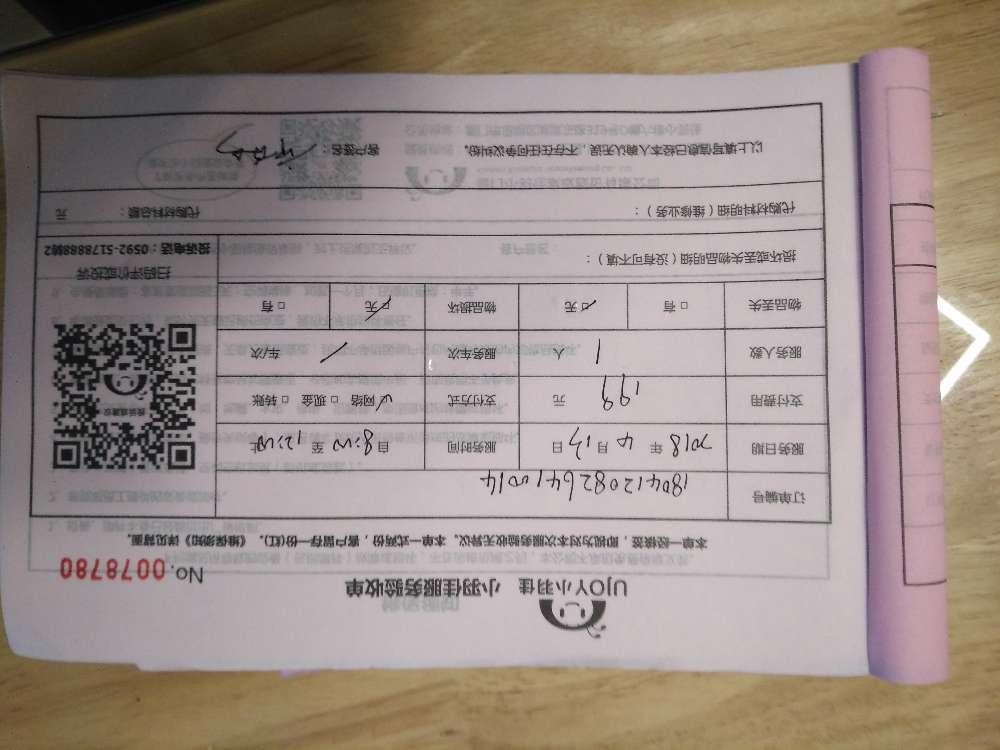 UJOY小羽佳 小羽佳服务验收单
No.0078780
本单一经核签，即视为对本次服务验收无异议。本单一式两份，客户留存一份(红)。《维保须知》详见背面。
订单编号
服务日期 2018 年 4 月 13 日 服务时间 自 8:00 至 12:00 止
支付费用 199 元 支付方式 ☑ 网络 □ 现金 □ 转账
服务人数 1 人 服务车次 / 车/次
物品丢失 □ 有 ☑ 无 物品损坏 ☑ 无 □ 有
扫码评价或投诉
投诉电话：0592-5178888转2
损坏或丢失物品明细（没有可不填）：
代购材料明细（维修业务）： 代购材料总额： 元
以上填写信息已经本人确认无误，不存在任何争议纠纷。 客户签名：